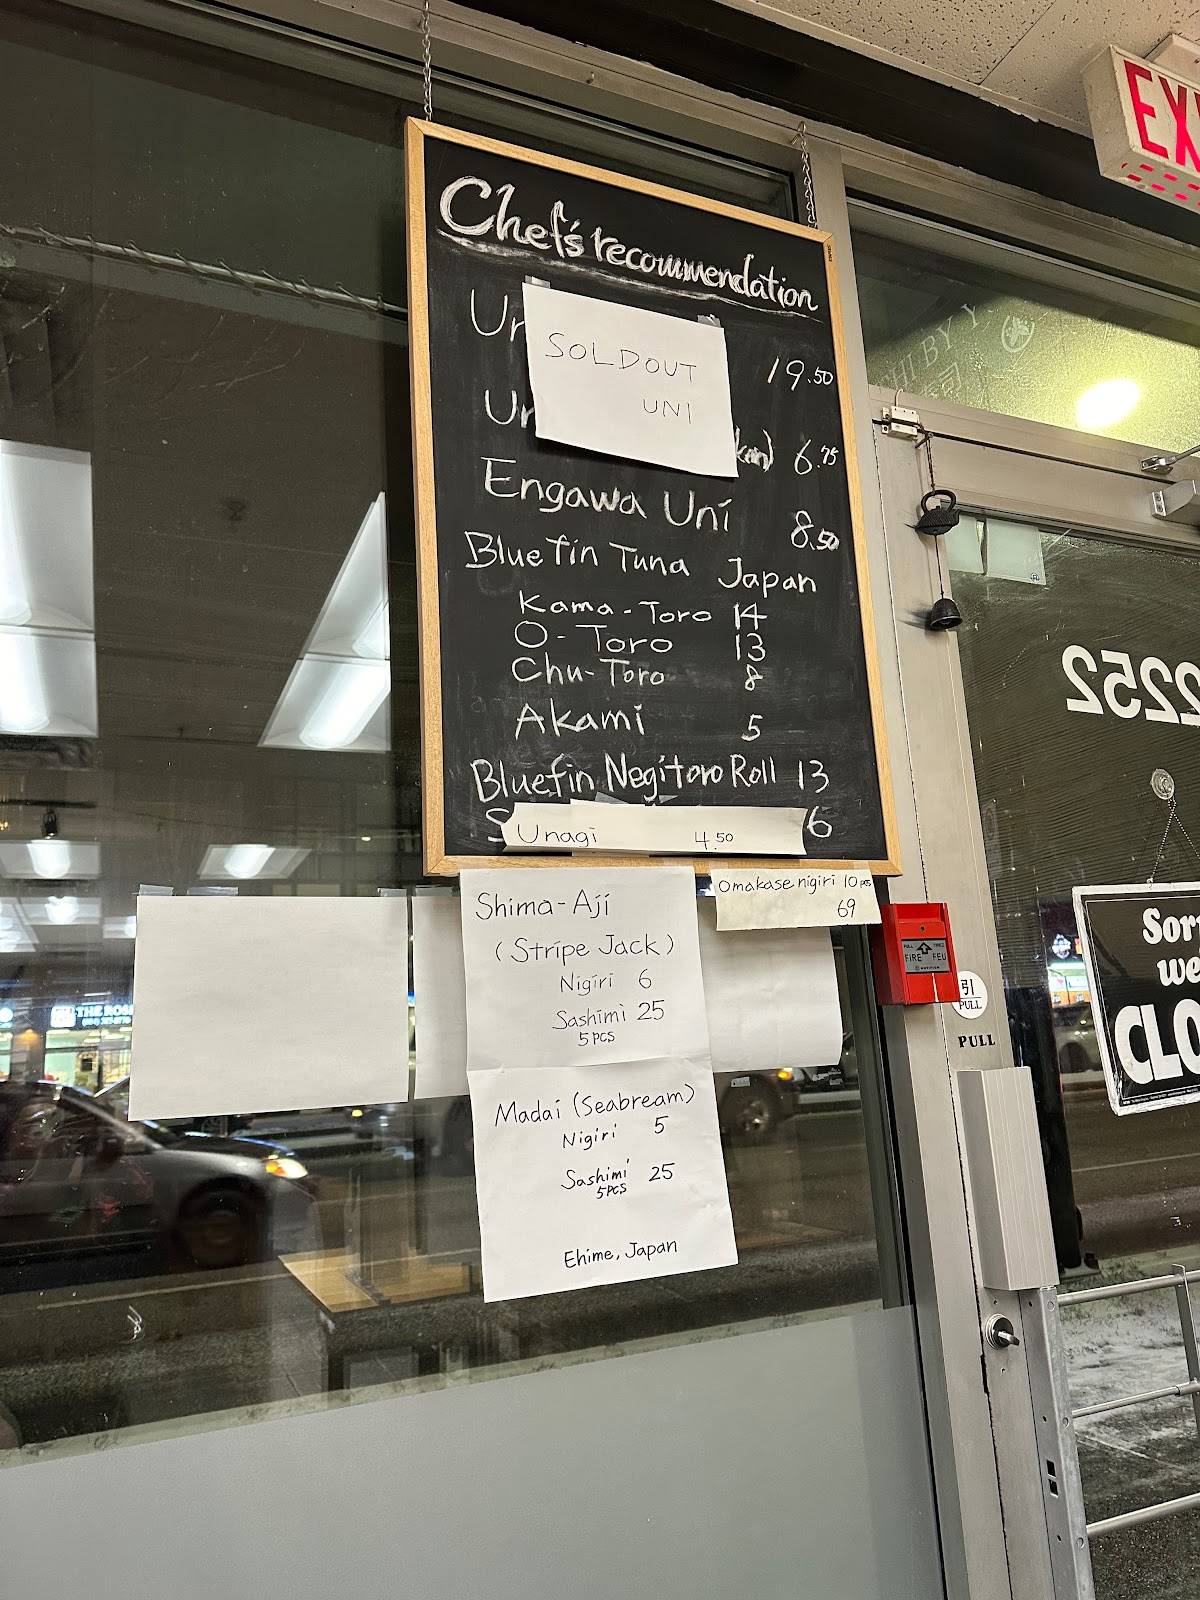 Chef's recommendation
SOLDOUT
UNI
19.50
6.75
Engawa Uni 8.50
Bluefin Tuna Japan
Kama-Toro 14
O-Toro 13
Chu-Toro 8
Akami 5
Bluefin Negitoro Roll 13
6
Unagi 4.50
Omakase nigiri 10 pcs
69
Shima-Aji
(Stripe Jack)
Nigiri 6
Sashimi 25
5 PCS
Madai (Seabream)
Nigiri 5
Sashimi 25
5PCS
Ehime, Japan
FIRE FEU
引
PULL
PULL
2252